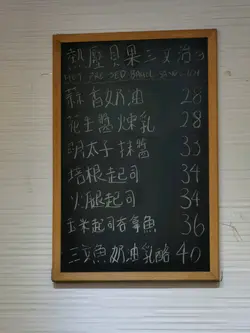 熱壓貝果三文治
HOT PRESSED BAGEL SANDWICH
蒜香奶油 28
花生醬煉乳 28
明太子抹醬 33
培根起司 34
火腿起司 34
玉米起司吞拿魚 36
三文魚奶油乳酪 40